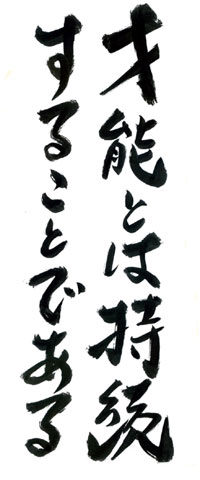 才能とは持続
することである